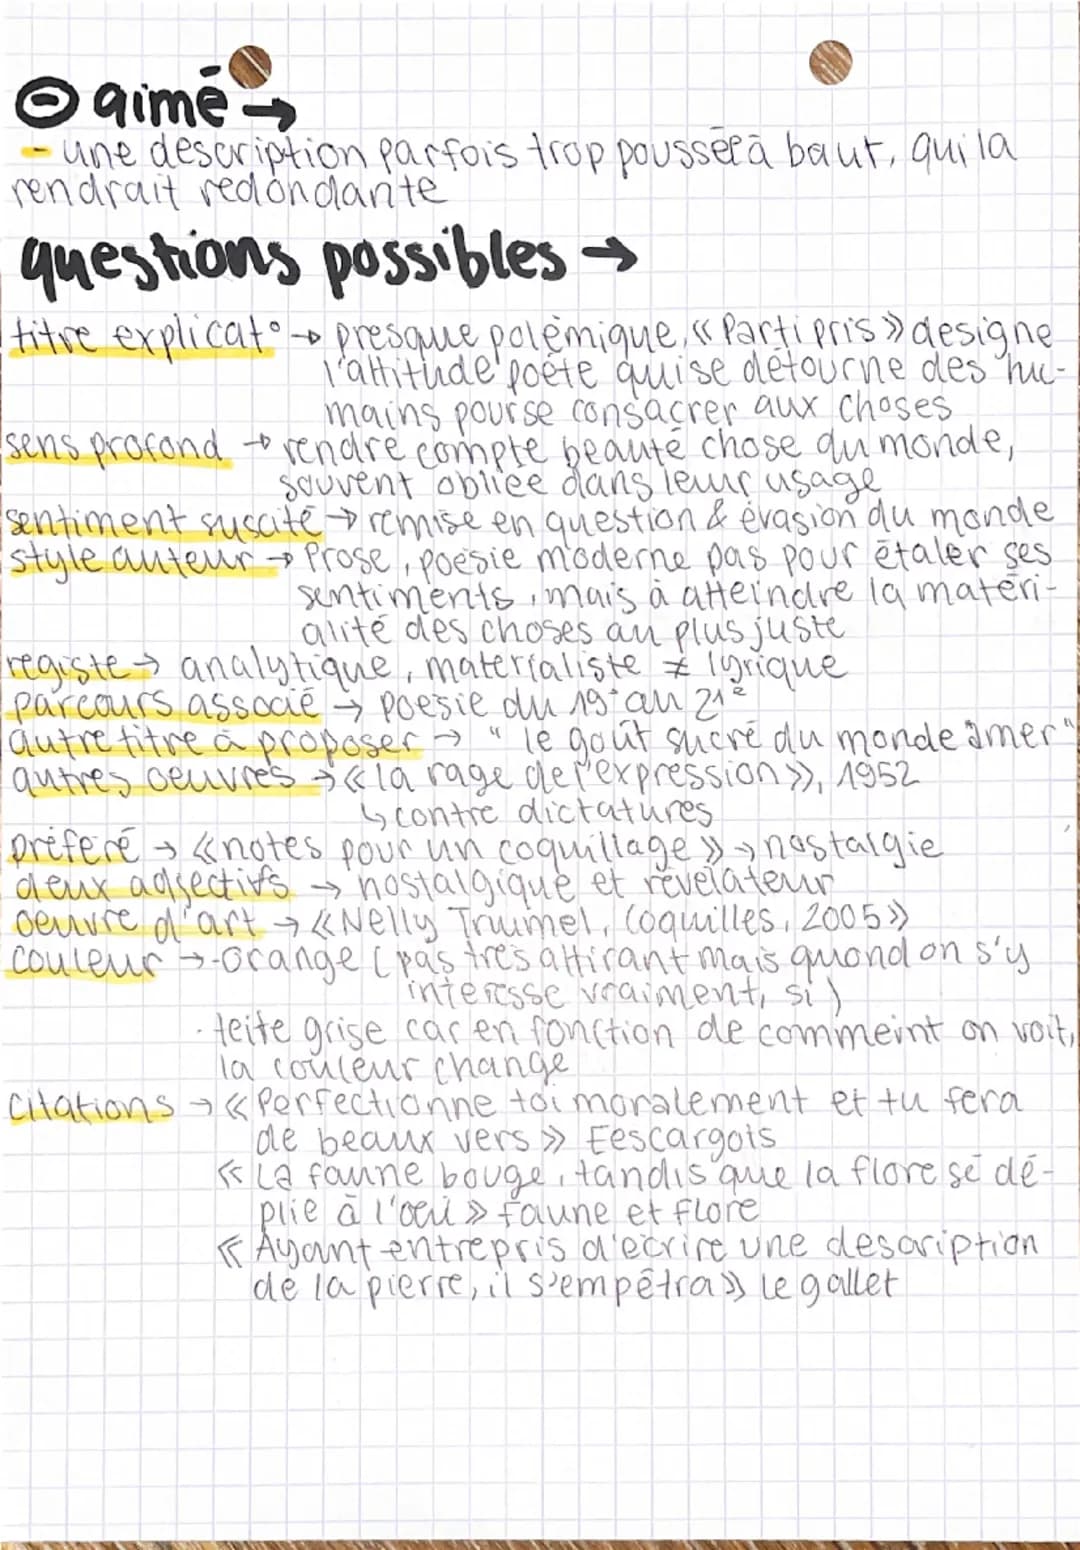 ⊖ aimé →
- une description parfois trop poussée à baut, qui la
rendrait redondante
questions possibles →
titre explicat° → presque polémique, « Parti pris » designe
l'attitude poète qui se détourne des hu-
mains pour se consacrer aux choses
sens profond → rendre compte beauté chose du monde,
souvent obliée dans leur usage
sentiment suscité → remise en question & évasion du monde
style auteur → Prose, poésie moderne pas pour étaler ses
sentiments, mais à atteindre la matéri-
alité des choses au plus juste
registe → analytique, materialiste ≠ lyrique
parcours associé → poesie du 19e au 21e
autre titre à proposer → " le goût sucré du monde amer"
autres oeuvres → « la rage de l'expression », 1952
↳ contre dictatures
préféré → « notes pour un coquillage » → nostalgie
deux adjectifs → nostalgique et révélateur
oeuvre d'art → « Nelly Trumel, Coquilles, 2005 »
couleur → - orange ( pas très attirant mais quand on s'y
interesse vraiment, si )
- teite grise car en fonction de comment on voit,
la couleur change
citations → « Perfectionne toi moralement et tu fera
de beaux vers » Eescargots
« La faune bouge, tandis que la flore se dé-
plie à l'oeil » faune et flore
« Ayant entrepris d'écrire une description
de la pierre, il s'empêtra » Le gallet